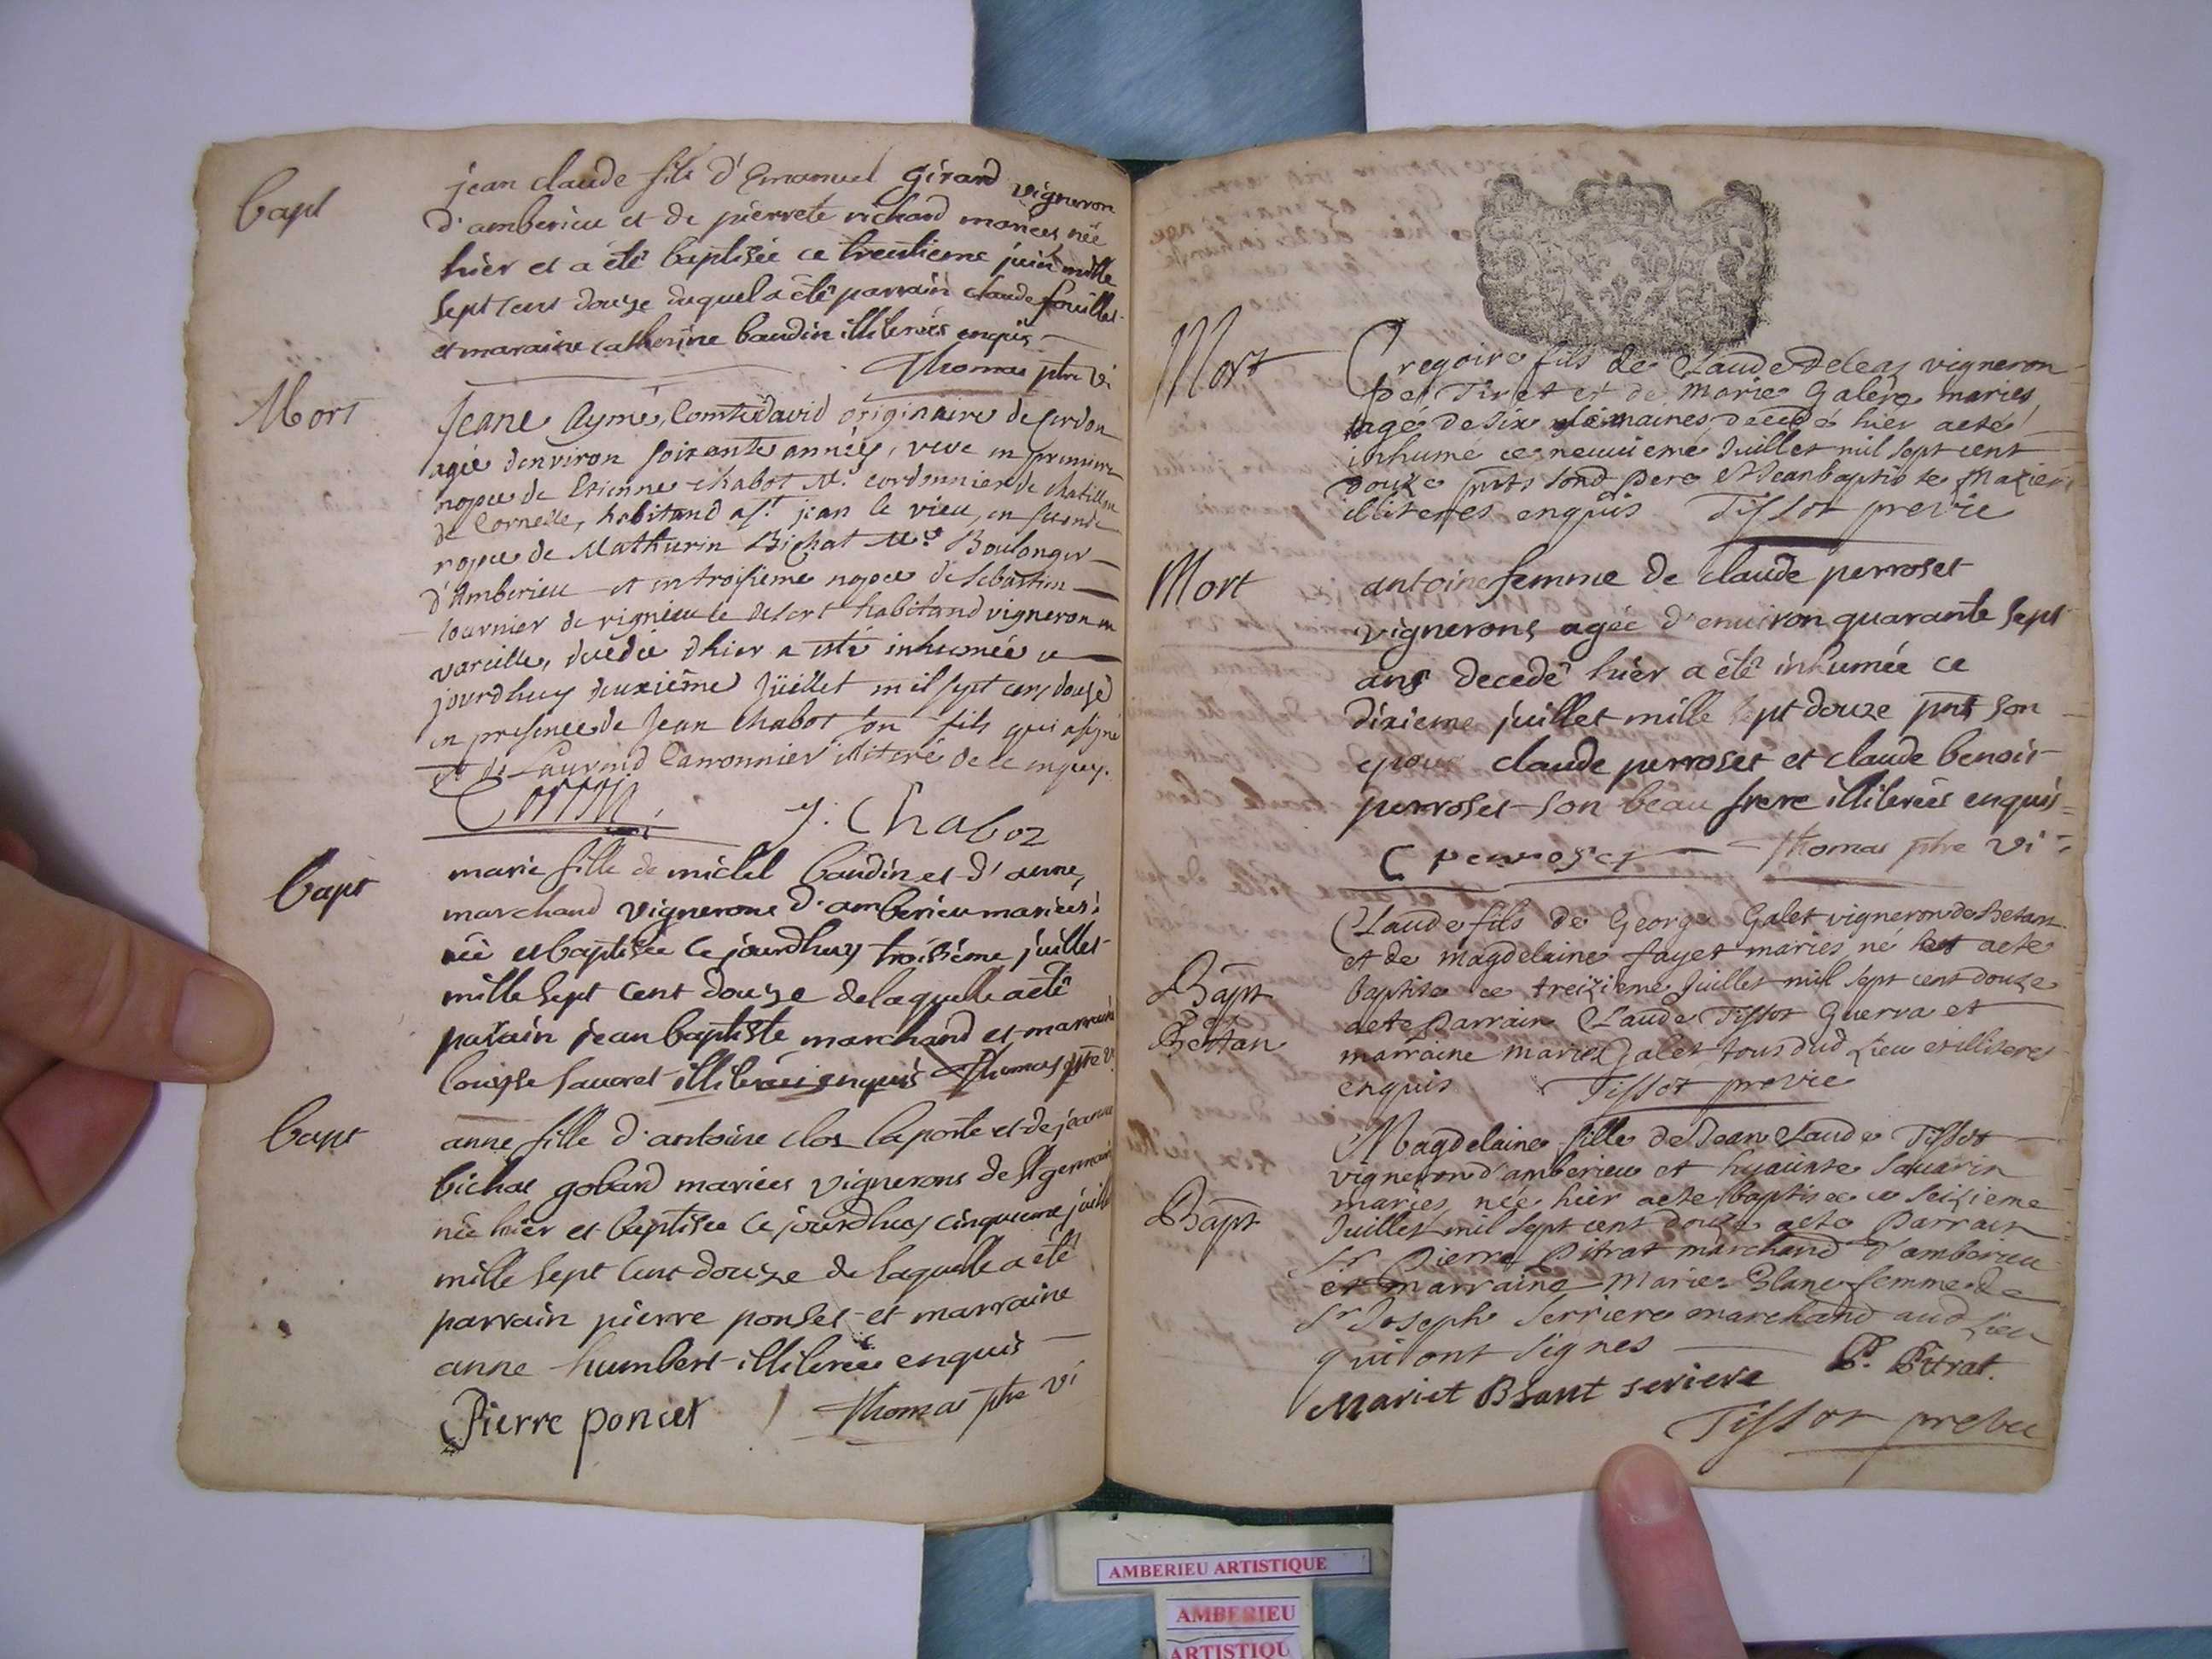 bapt
jean claude fils d'Emanuel Girard vigneron
d'amberieu et de pierrete richard mariees née
hier et a été baptisée ce trentieme juin mille
sept cent douze duquel a été parrain claude fouillet
et maraine catherine baudin illiterées enquis
Thomas ptre vi
Mort
Jeane Aymé, Comte david originaire de Cerdon
agée d'environ soixante années, veve en premiere
nopce de Etienne chabot Me. cordonnier de chatillon
de Corneille, habitand a St. jean le vieu, en seconde
nopce de Mathurin Bichat Me. Boulonger
d'Amberieu et en troisieme nopce de Sebastien
tournier de rignieu le desert habitand vigneron en
vareille, decedée d'hier a esté inhumée ce
jourdhuy deuxième Jüillet mil sept cens douze
en presence de Jean Chabot son fils qui a signé
et de Laurend Carronnier illiteré de ce enquy.
J. Chaboz
bapt
marie fille de michel baudin et d'anne
marchand vignerons d'amberieu mariees
née et baptisée ce jourdhuy troisième juillet
mille sept cent douze de laquelle a été
parain jean baptiste marchand et marraine
louyse sauvet illiterées enquis Thomas ptre vi
bapt
anne fille d'antoine clos laporte et de jeanne
bichat gobard mariees vignerons de St germain
née hier et baptisée ce jourdhuy cinquieme juillet
mille sept cent douze de laquelle a été
parrain pierre ponset et marraine
anne humbert illiterée enquis
Pierre poncet Thomas ptre vi
Mort
Gregoire fils de Claude Deleaz vigneron
de Tiret et de Marie Galere maries
agé de six semaines decedé hier aeté
inhumé ce neuvieme Juillet mil sept cent
douze pnts sond pere et Jean baptiste Mazier
illiteres enquis Tissot prevre
Mort
antoine femme de claude perroset
vignerons agée d'environ quarante sept
ans decedé hier a été inhumée ce
dixieme juillet mille sept douze pnt son
epoux claude perroset et claude benoit
perroset son beau frere illiterées enquis
C perroset Thomas ptre vi
Bapt
et
Bettan
Claude fils de George Galet vigneron de Betant
et de magdelaine fayet maries né het aeté
baptise ce treizieme Juillet mil sept cent douze
aete Parrain Claude Tissot Guerra et
marraine marie Galet tous dud Lieu et illiteres
enquis Tissot prevre
Bapt
Magdelaine fille de Jean Claude Tissot
vigneron d'amberieu et hyacinte Savarin
maries née hier aete baptisee ce seizieme
Juillet mil sept cent douze aete Parrain
Sr Pierre Pitrat marchand d'amberieu
et marraine Marie Blanc femme de
Sr Joseph Serriere marchand aud Lieu
qui ont signes P. Pitrat.
Mariet Blant seriere
Tissot prebre
AMBERIEU ARTISTIQUE
AMBERIEU
ARTISTIQU